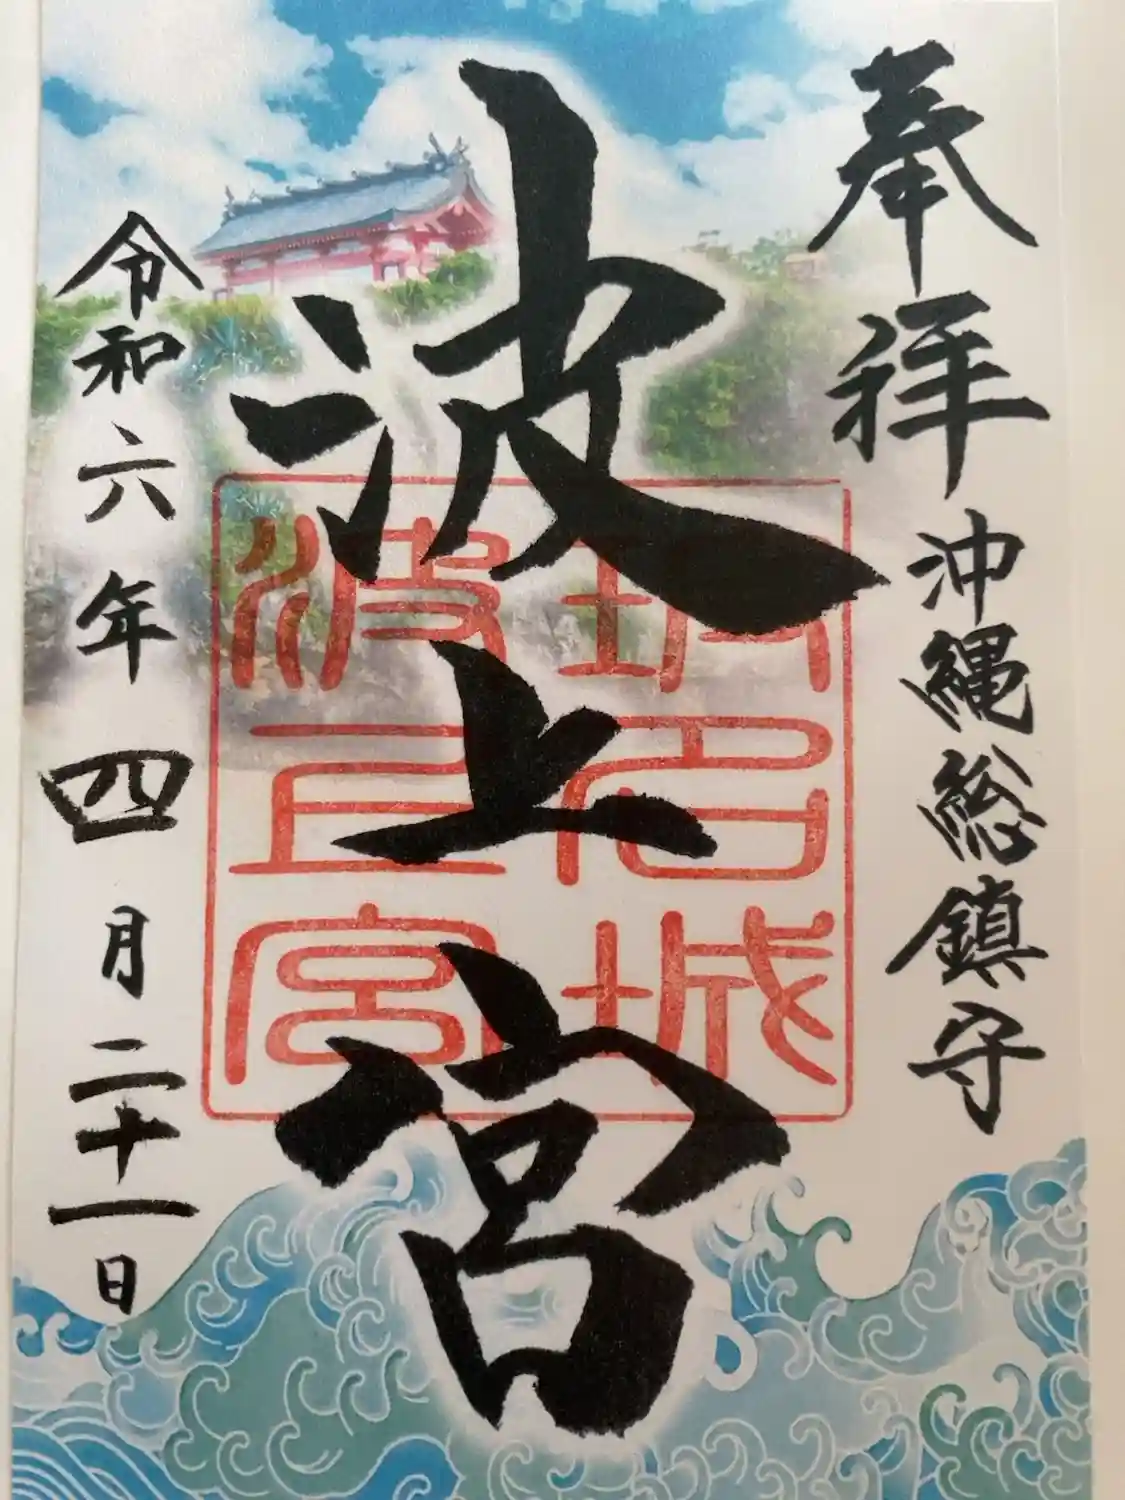 奉拝
沖縄総鎮守
波上宮
令和六年四月二十一日
波上宮